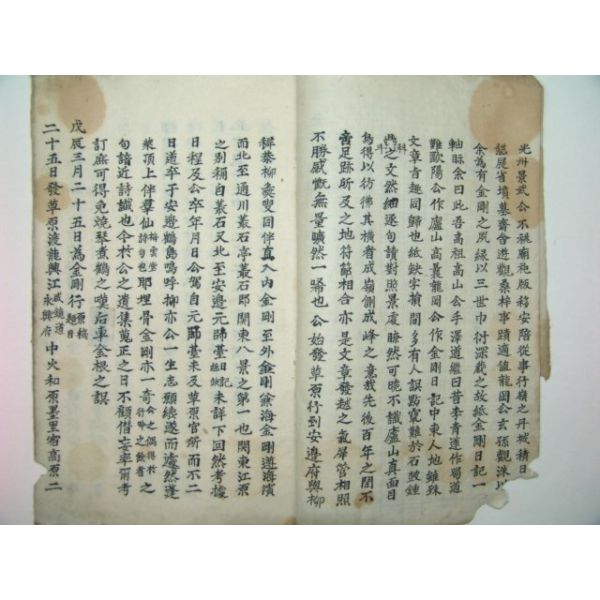 光州景武公不祧廟施版移安陪從事行嶺之丹城積日
龍展省墳墓齋舍遊觀桑梓事蹟適値龍岡公玄孫觀洙以
余爲有金剛之夙緣以三世巾衍深藏之故紙金剛日記一
軸眎余曰此吾高祖高山公手澤遊繼曰昔李青蓮作蜀道
難歐陽公作廬山高葛龍岡公作金剛日記中東人地雖殊
文章旨趣同歸也紙缺字損間多有人誤點竄難於石鼓鍾
典之文然細逐句請對照景處瞭然可曉不識廬山眞面目
烏得以彷彿其橫看成嶺側成峰之意哉先後百年之間不
啻足跡所及之地符節相合亦是文章發越之氣犀管相照
不勝感慨無量曠然一噱也公始發草原行到安邊府與柳
穉恭柳彝叟同伴直入內金剛至外金剛登海金剛遵海濱
而北至通川叢石亭叢石卽關東八景之第一也關東江原
之別稱自叢石又北至安邊元師臺日記未詳下回然考據
日程及公卒年月日公駕自元師臺未及草原官所而不二
日道卒于安邊鶴島嗚呼抑亦公一生志願續遂而遽然蓬
萊頂上伴羣仙耶埋骨金剛亦一奇之
句諳近詩讖也今於公之遺集蒐正之日不顧僣妄率爾考
訂庶可得免燒琴煮鶴之嘆右車金根之誤
戊辰三月二十五日爲金剛行舊稿題目
二十五日發草原渡龍興江咸鏡道永興府中火和原墨里宿高原二